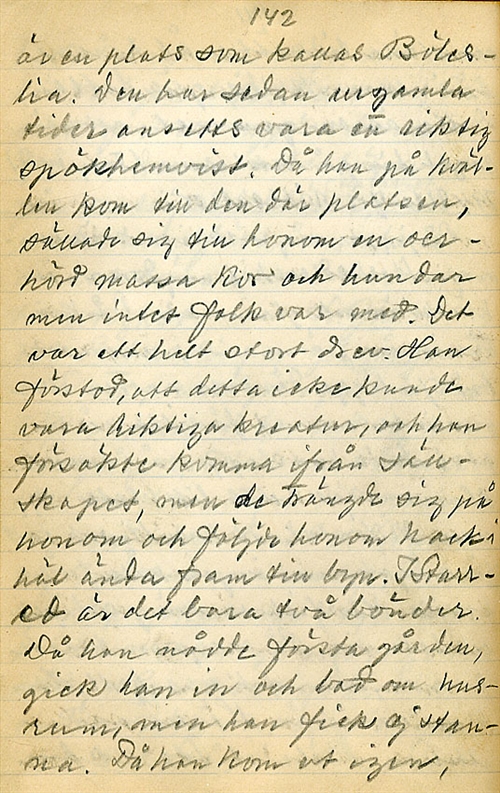 142
är en plats som kallas Böles-
lia. Den har sedan urgamla
tider ansetts vara en riktig
spökhemvist. Då han på kväl-
len kom till den där platsen,
sällade sig till honom en oer-
hörd massa kor och hundar
men intet folk var med. Det
var ett helt stort drev. Han
förstod, att detta icke kunde
vara riktiga kreatur, och han
försökte komma ifrån säll-
skapet, men de trängde sig på
honom och följde honom hack i
häl ända fram till byn. I Starr-
ed är det bara två bönder.
Då han nådde första gården,
gick han in och bad om hus-
rum, men han fick ej stan-
na. Då han kom ut igen,